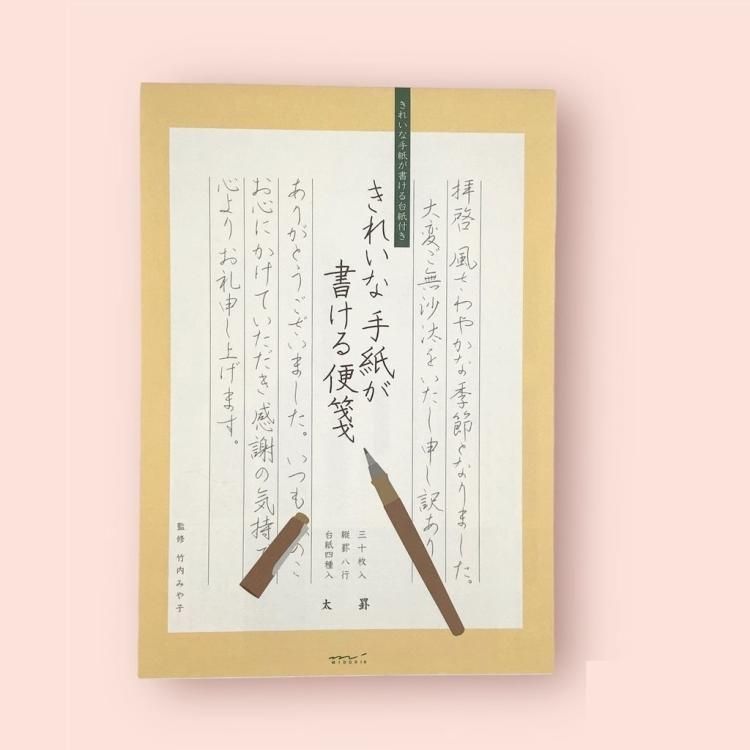 拝啓 風さわやかな季節となりました。
大変ご無沙汰をいたし申し訳あり
きれいな手紙が書ける台紙付き
きれいな手紙が
書ける便箋
三十枚入
縦罫八行
台紙四種入
太罫
ありがとうございました。いつも
お心にかけていただき感謝の気持
心よりお礼申し上げます。
監修 竹内みや子
MIDORI